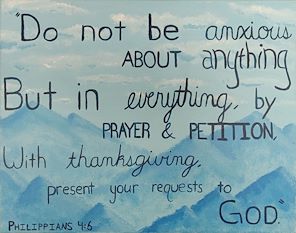 "Do not be anxious
ABOUT anything
But in everything, by
PRAYER & PETITION,
With thanksgiving,
present your requests to
GOD."
PHILIPPIANS 4:6